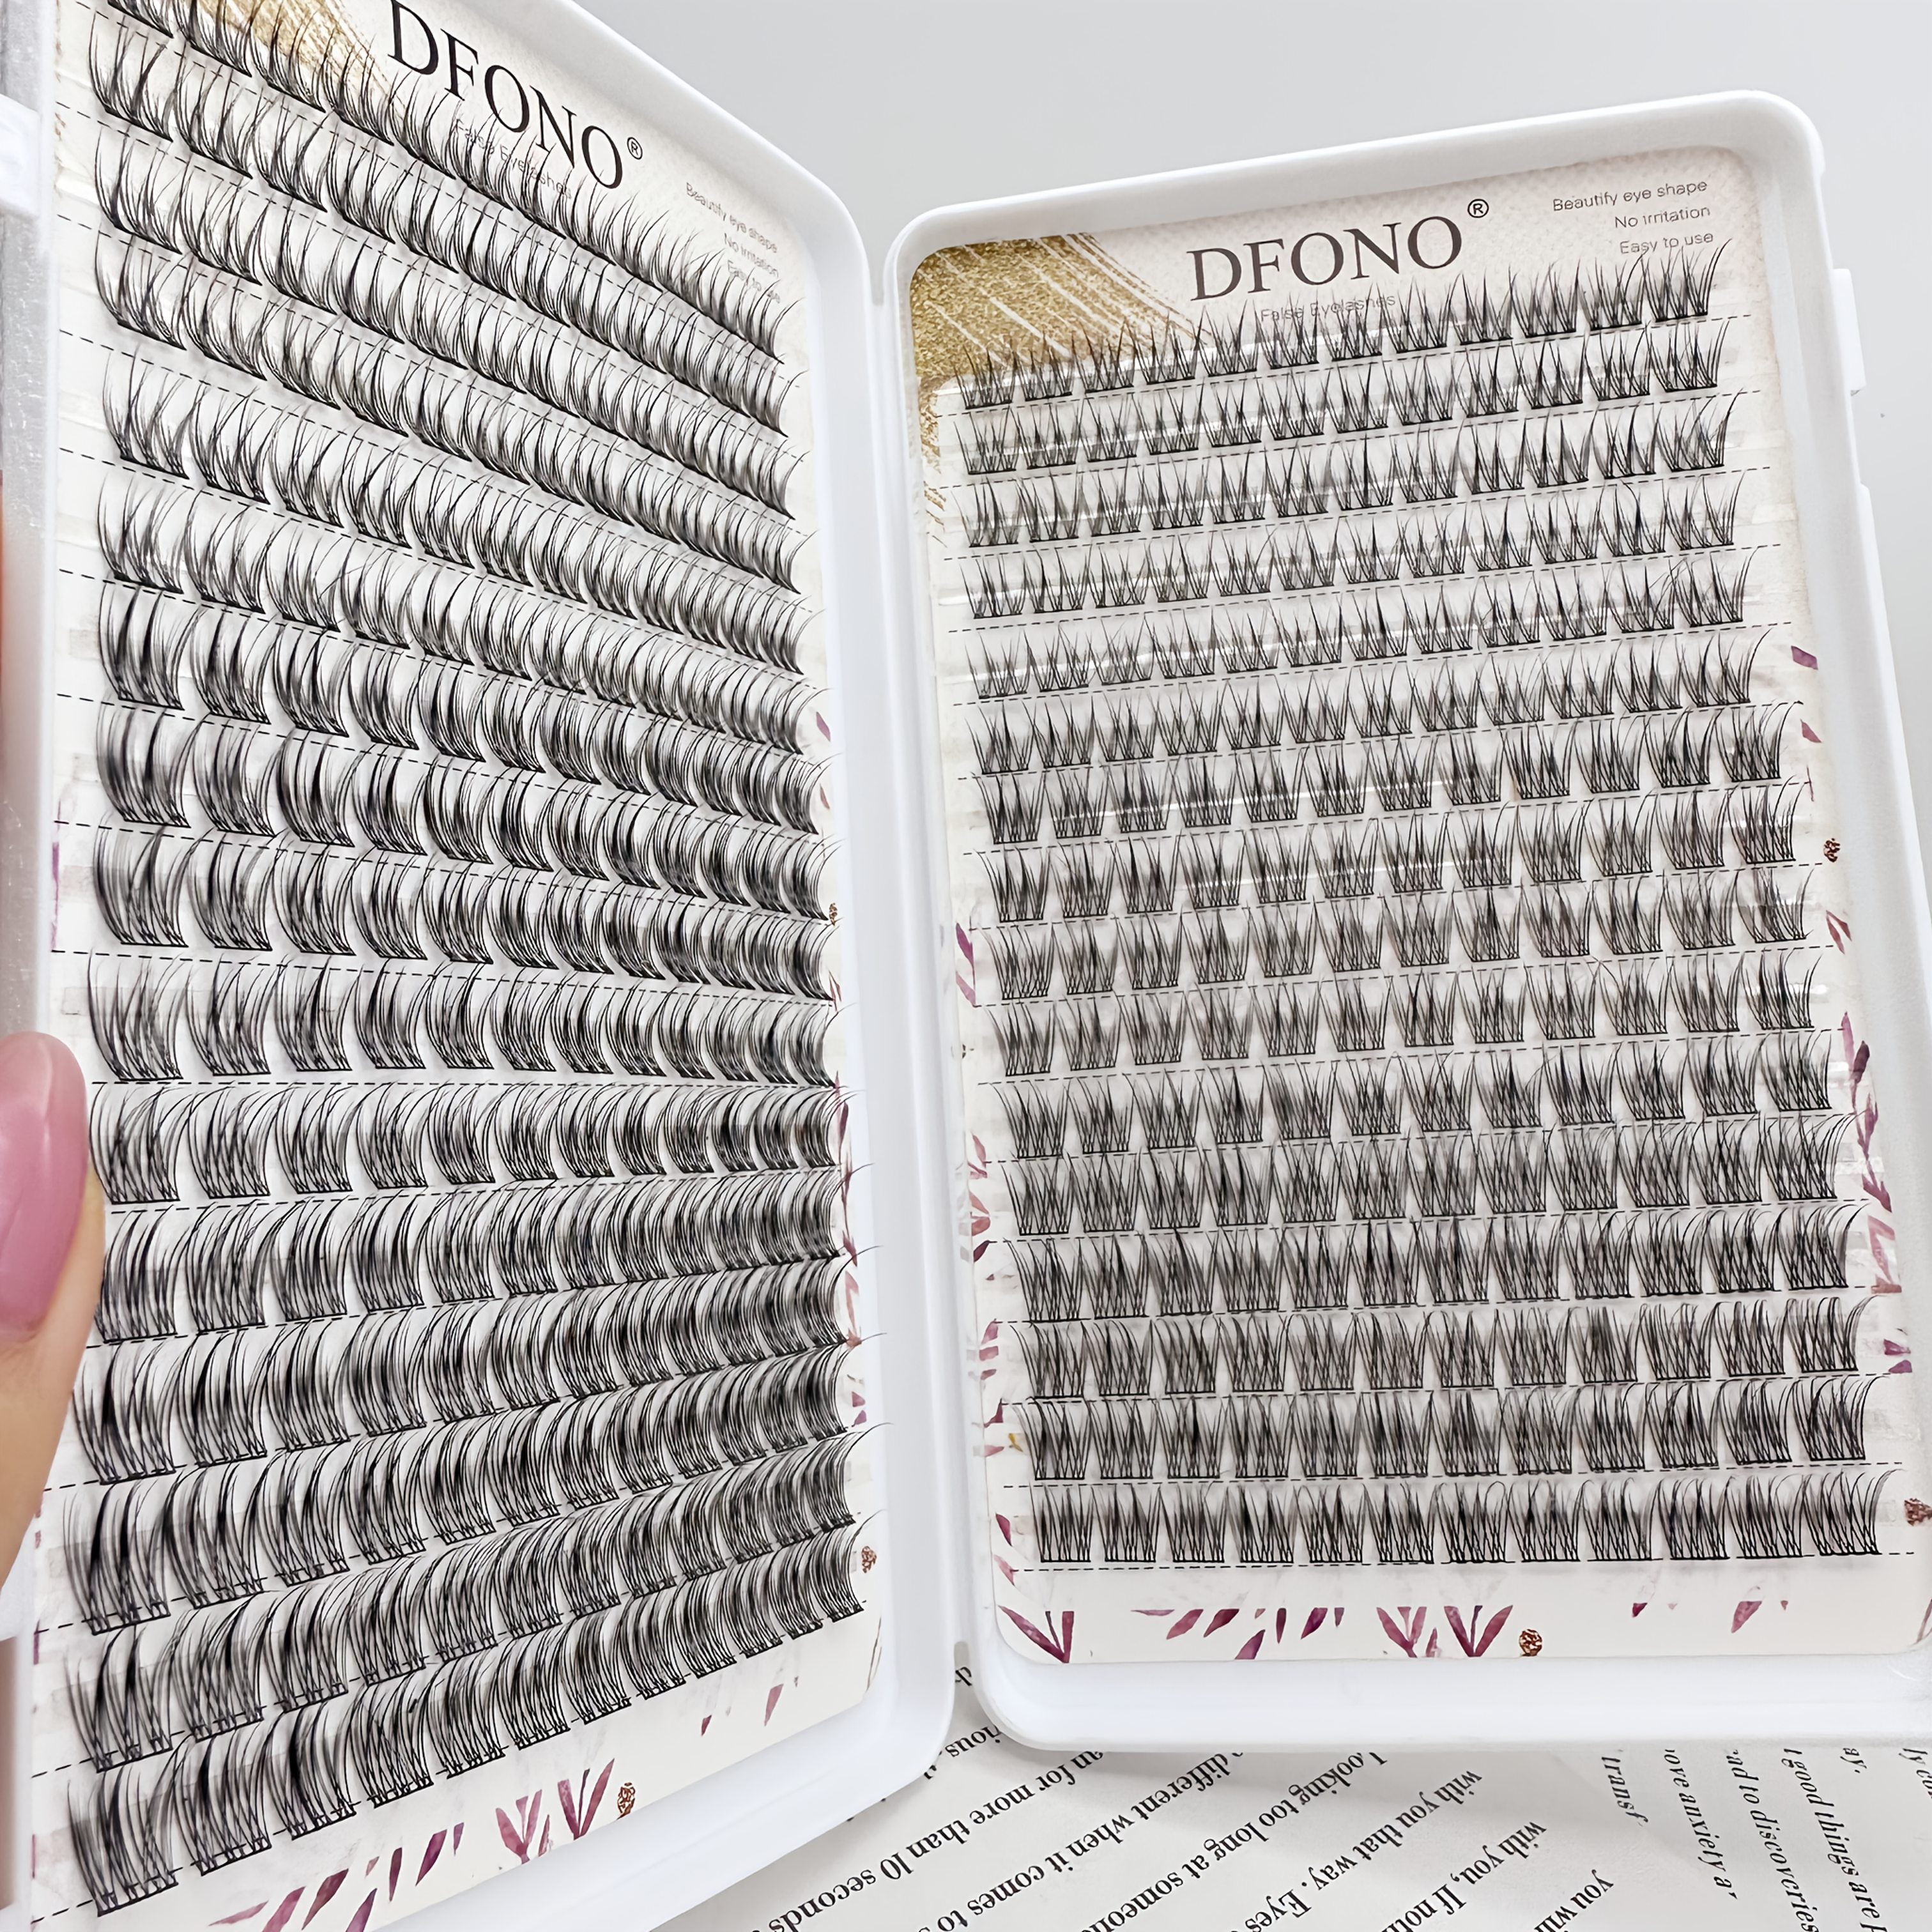 DFONO®
False Eyelashes
Beautify eye shape
No irritation
Easy to use
DFONO®
False Eyelashes
Beautify eye shape
No irritation
Easy to use
an for more than 10 seconds
different when it comes to
Looking too long at someone
with you that way. Eyes
with you, If
you
ove anxiety
to discover
good things are